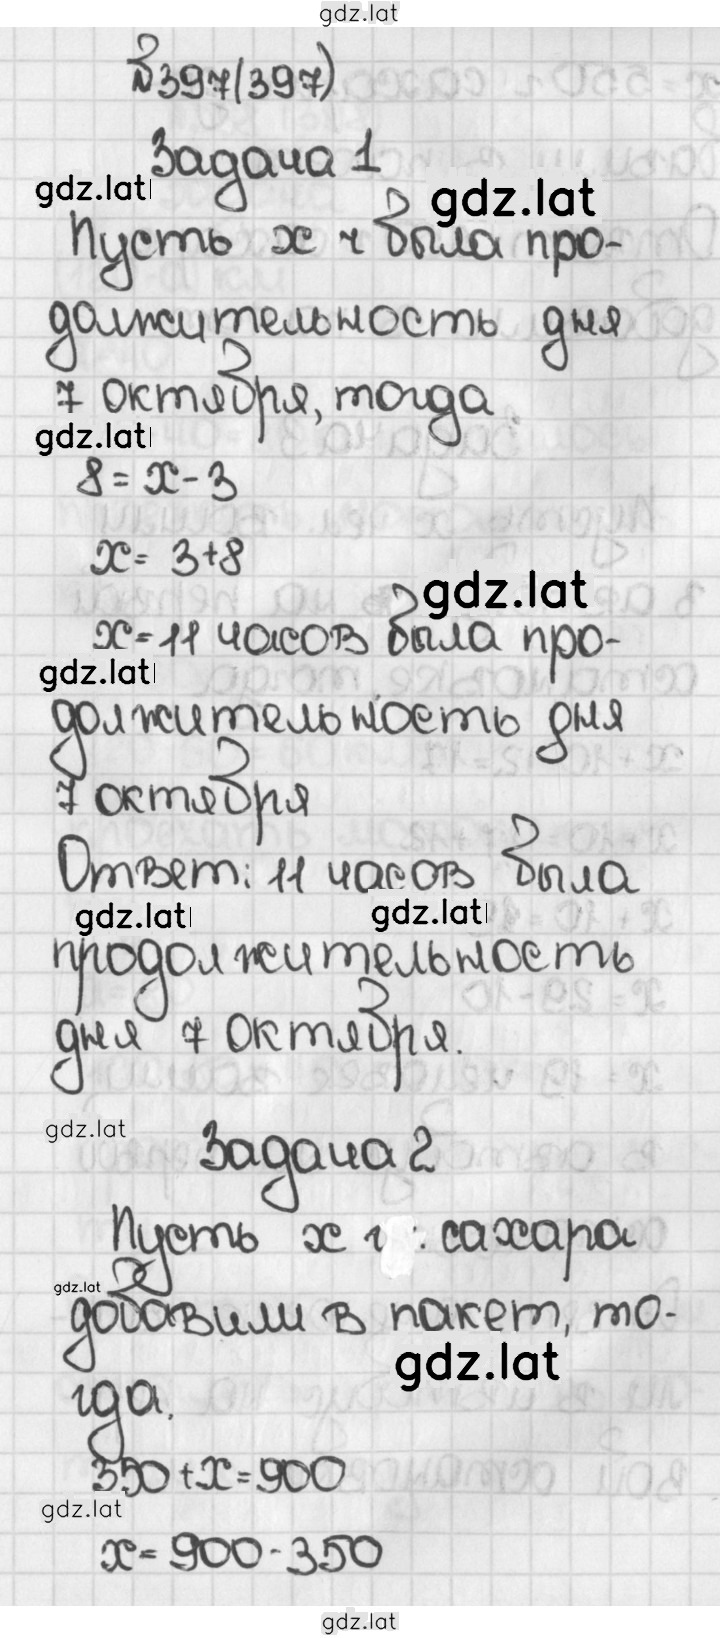 gdz.lat
№397(397)
Задача 1
gdz.lat gdz.lat
Пусть x ч была про-
должительность дня
7 октября, тогда
gdz.lat
8 = x - 3
x = 3 + 8
gdz.lat
x = 11 часов была про-
gdz.lat
должительность дня
7 октября
Ответ: 11 часов была
gdz.lat gdz.lat
продолжительность
дня 7 октября.
gdz.lat
Задача 2
Пусть x г сахара
gdz.lat
добавили в пакет, то-
gdz.lat
гда.
350 + x = 900
gdz.lat
x = 900 - 350
gdz.lat